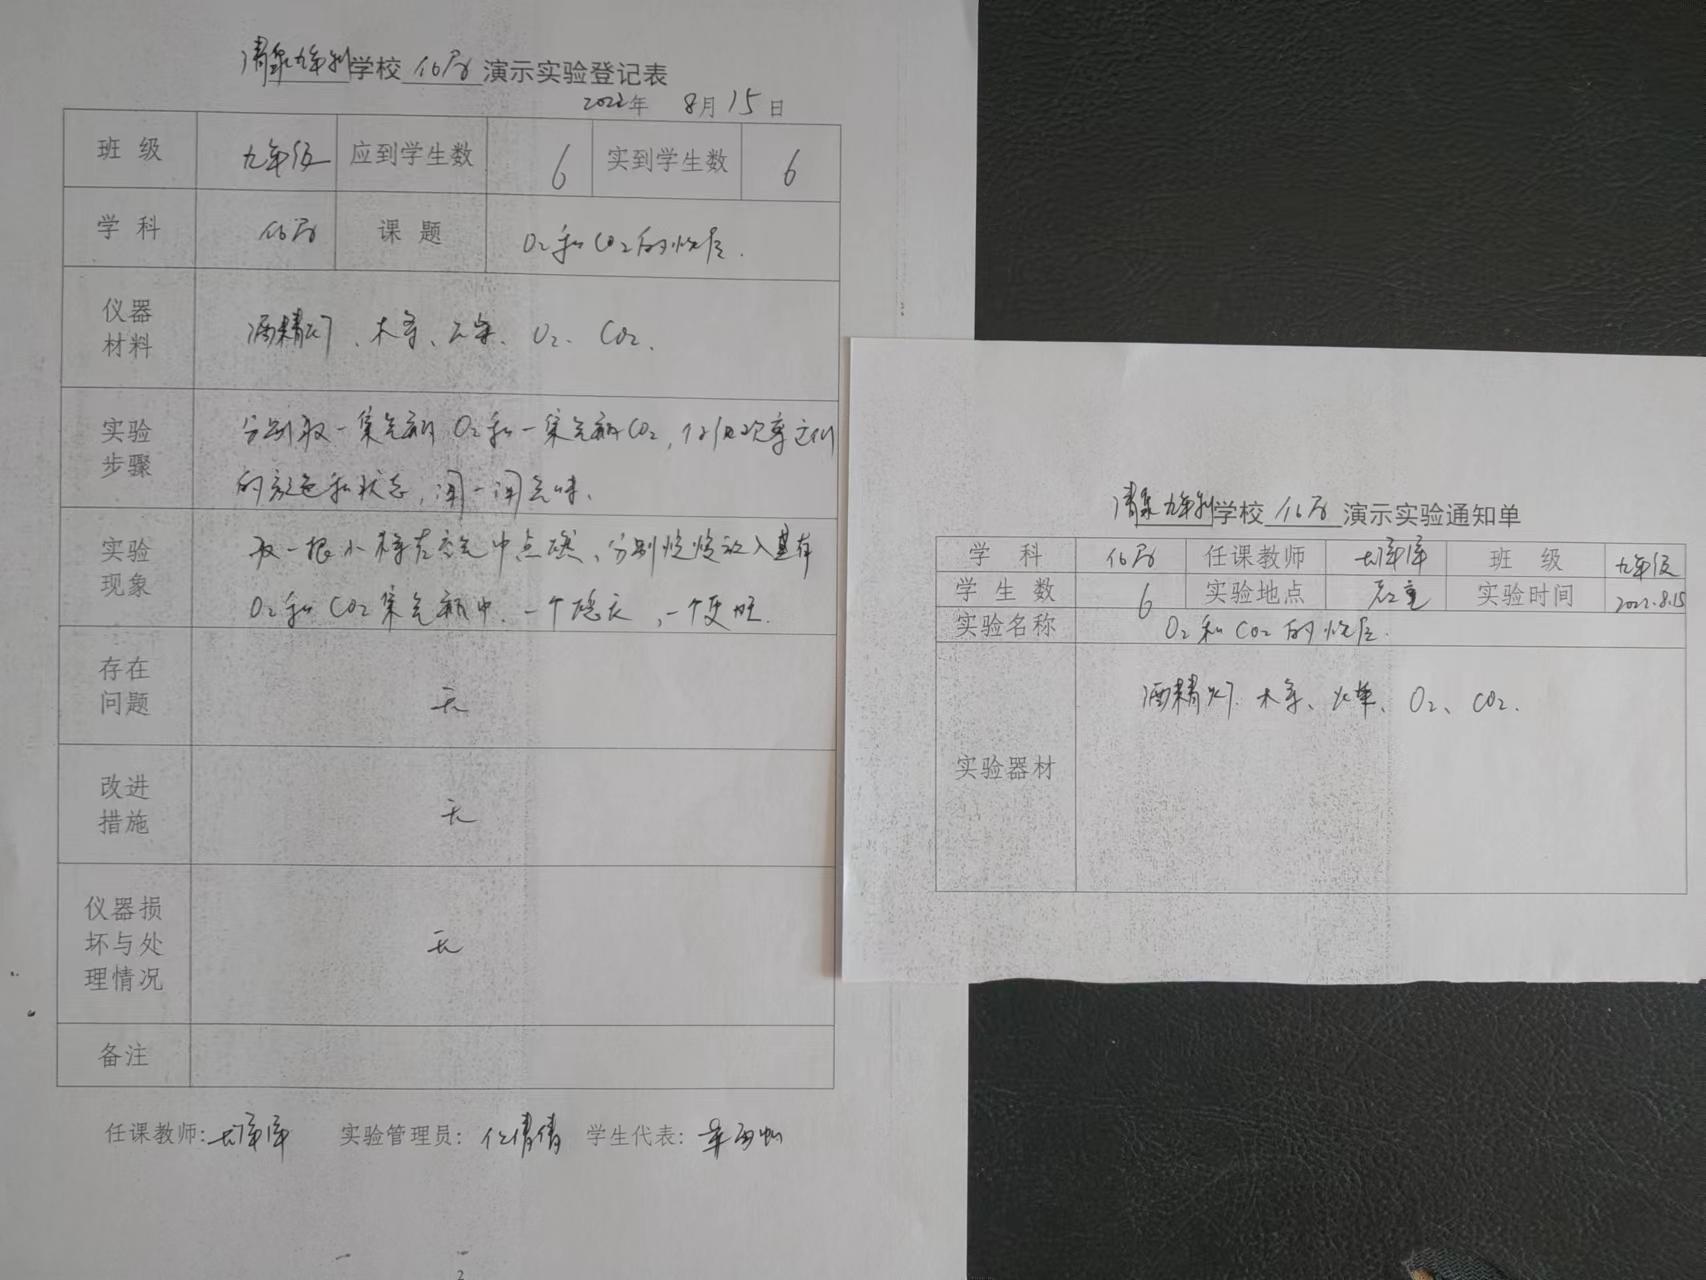 清泉九年制学校 化学 演示实验登记表
2022年 8月15日
班 级 九年级 应到学生数 6 实到学生数 6
学 科 化学 课 题 O₂和CO₂的性质.
仪器
材料
酒精灯、木条、火柴、O₂、CO₂.
实验
步骤
分别取一集气瓶O₂和一集气瓶CO₂,仔细观察它们
的颜色和状态,闻一闻气味.
实验
现象
取一根小棒在空气中点燃、分别缓慢放入盛有
O₂和CO₂集气瓶中.一个熄灭,一个更旺.
存在
问题
无
改进
措施
无
仪器损
坏与处
理情况
无
备注
任课教师: 实验管理员: 倩倩 学生代表:
2
清泉九年制学校 化学 演示实验通知单
学 科 化学 任课教师 班 级 九年级
学 生 数 6 实验地点 实验时间 2022.8.15
实验名称 O₂和CO₂的性质.
实验器材
酒精灯.木条、火柴、O₂、CO₂.